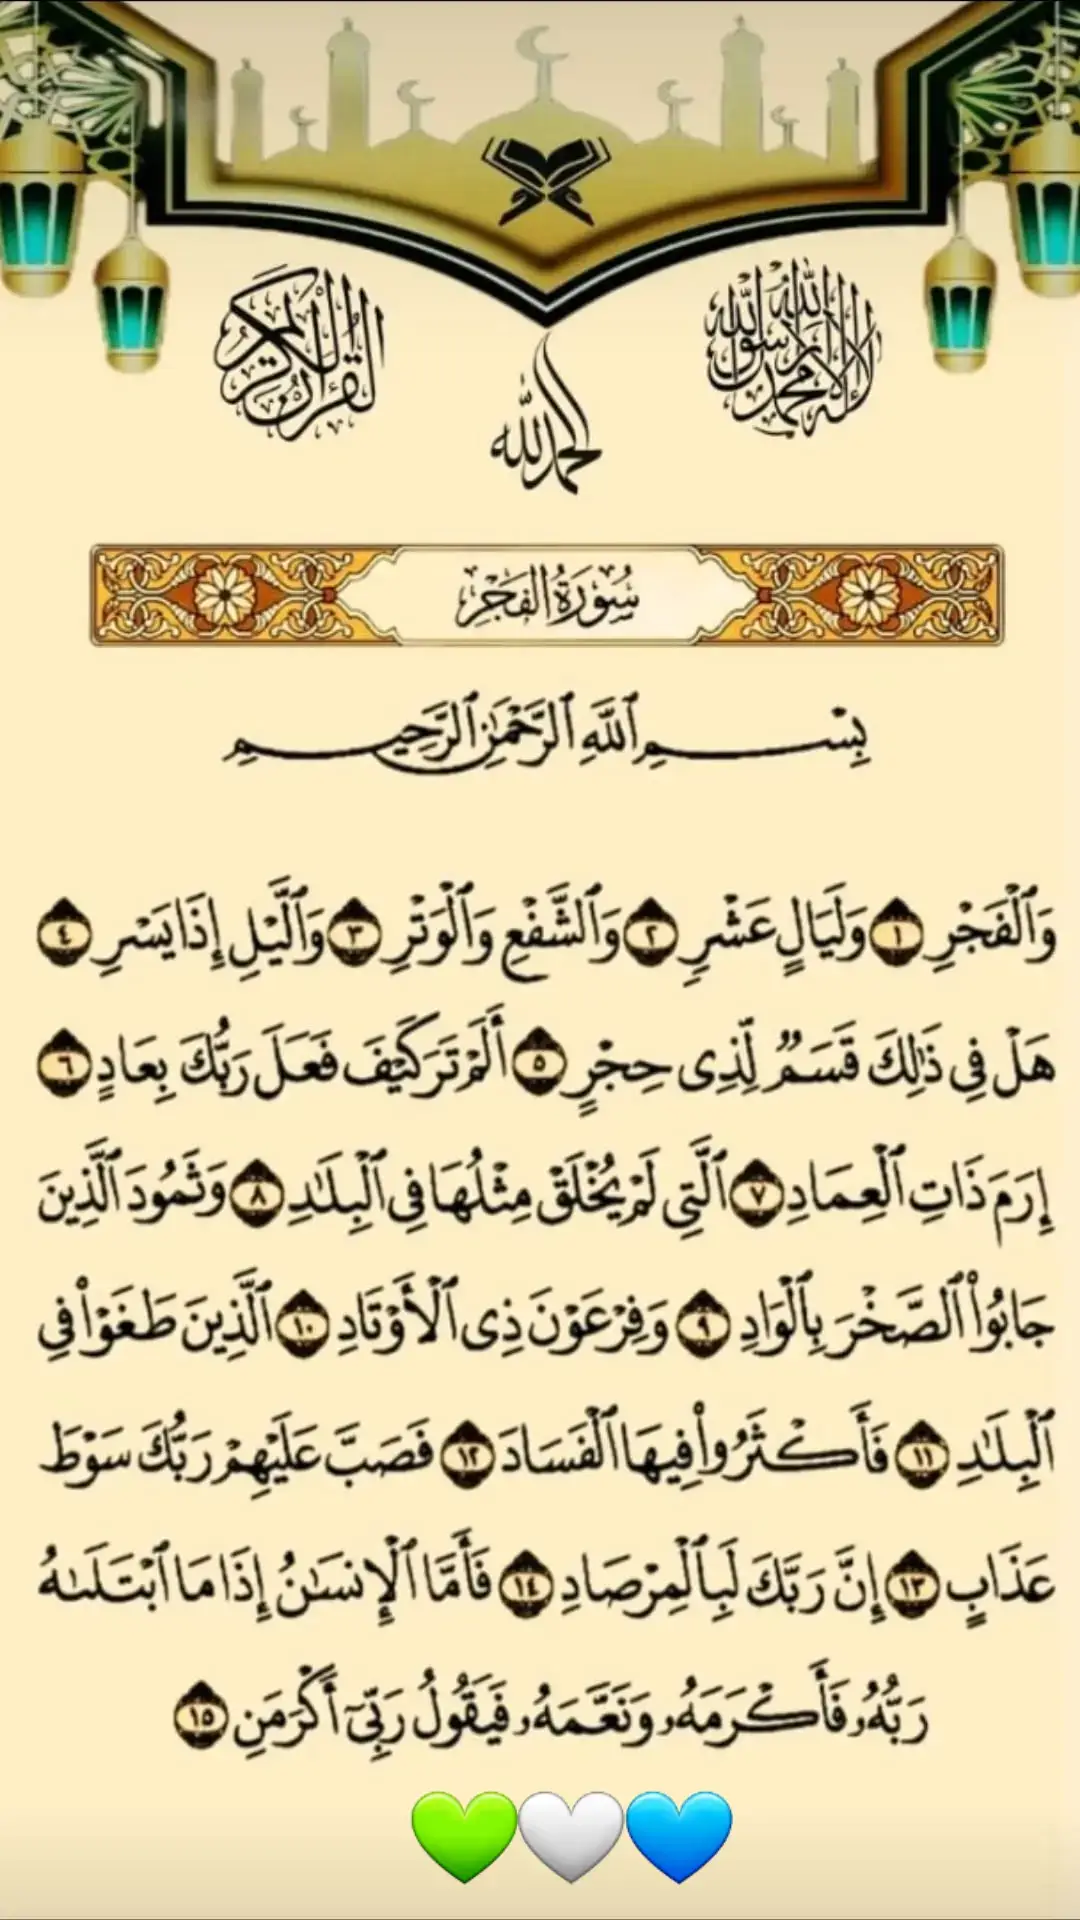 القرآن الكريم
لا إله إلا الله محمد رسول الله
الحمد لله
سُورَةُ الفَجْرِ
بِسْمِ ٱللَّهِ ٱلرَّحْمَٰنِ ٱلرَّحِيمِ
وَٱلْفَجْرِ ١ وَلَيَالٍ عَشْرٍ ٢ وَٱلشَّفْعِ وَٱلْوَتْرِ ٣ وَٱلَّيْلِ إِذَا يَسْرِ ٤
هَلْ فِى ذَٰلِكَ قَسَمٌ لِّذِى حِجْرٍ ٥ أَلَمْ تَرَ كَيْفَ فَعَلَ رَبُّكَ بِعَادٍ ٦
إِرَمَ ذَاتِ ٱلْعِمَادِ ٧ ٱلَّتِى لَمْ يُخْلَقْ مِثْلُهَا فِى ٱلْبِلَٰدِ ٨ وَثَمُودَ ٱلَّذِينَ
جَابُوا۟ ٱلصَّخْرَ بِٱلْوَادِ ٩ وَفِرْعَوْنَ ذِى ٱلْأَوْتَادِ ١٠ ٱلَّذِينَ طَغَوْا۟ فِى
ٱلْبِلَٰدِ ١١ فَأَكْثَرُوا۟ فِيهَا ٱلْفَسَادَ ١٢ فَصَبَّ عَلَيْهِمْ رَبُّكَ سَوْطَ
عَذَابٍ ١٣ إِنَّ رَبَّكَ لَبِٱلْمِرْصَادِ ١٤ فَأَمَّا ٱلْإِنسَٰنُ إِذَا مَا ٱبْتَلَىٰهُ
رَبُّهُۥ فَأَكْرَمَهُۥ وَنَعَّمَهُۥ فَيَقُولُ رَبِّىٓ أَكْرَمَنِ ١٥